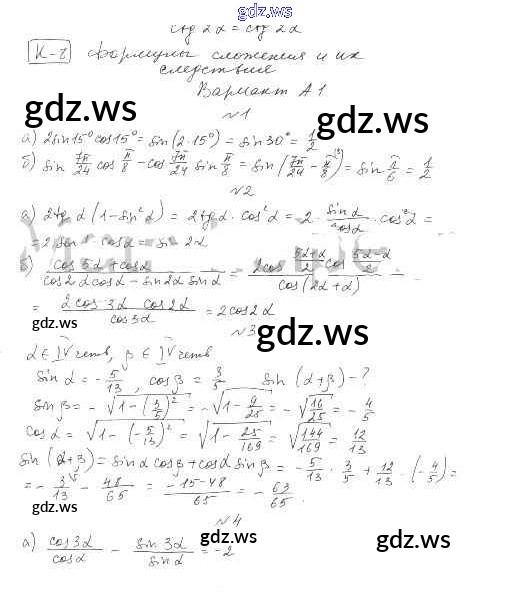 gdz.ws
ctg 2α = ctg 2α
К-8 Формулы сложения и их
следствия
Вариант А1
gdz.ws gdz.ws
№1
а) 2sin15° cos15° = sin(2·15°) = sin30° = 1/2
б) sin 7π/24 cos π/8 - cos 7π/24 sin π/8 = sin(7π/24 - π/8) = sin π/6 = 1/2
№2
а) 2tg α (1-sin²α) = 2tg α · cos²α = 2 · sinα/cosα · cos²α =
= 2 sinα · cosα = sin 2α
б) (cos5α + cosα)/(cos2α cosα - sin2α sinα) = (2cos (5α+α)/2 cos (5α-α)/2)/(cos(2α+α)) =
= (2cos 3α cos 2α)/(cos3α) = 2cos2α
gdz.ws gdz.ws
№3
α ∈ IV четв, β ∈ IV четв
sin α = -5/13, cos β = 3/5 sin (α+β) - ?
sin β = -√(1-(3/5)²) = -√(1-9/25) = -√(16/25) = -4/5
cos α = √(1-(-5/13)²) = √(1-25/169) = √(144/169) = 12/13
sin (α+β) = sinα cosβ + cosα sinβ = -5/13 · 3/5 + 12/13 · (-4/5) =
= -3/13 - 48/65 = (-15-48)/65 = -63/65.
№4
а) cos3α/cosα - sin3α/sinα = -2
gdz.ws gdz.ws